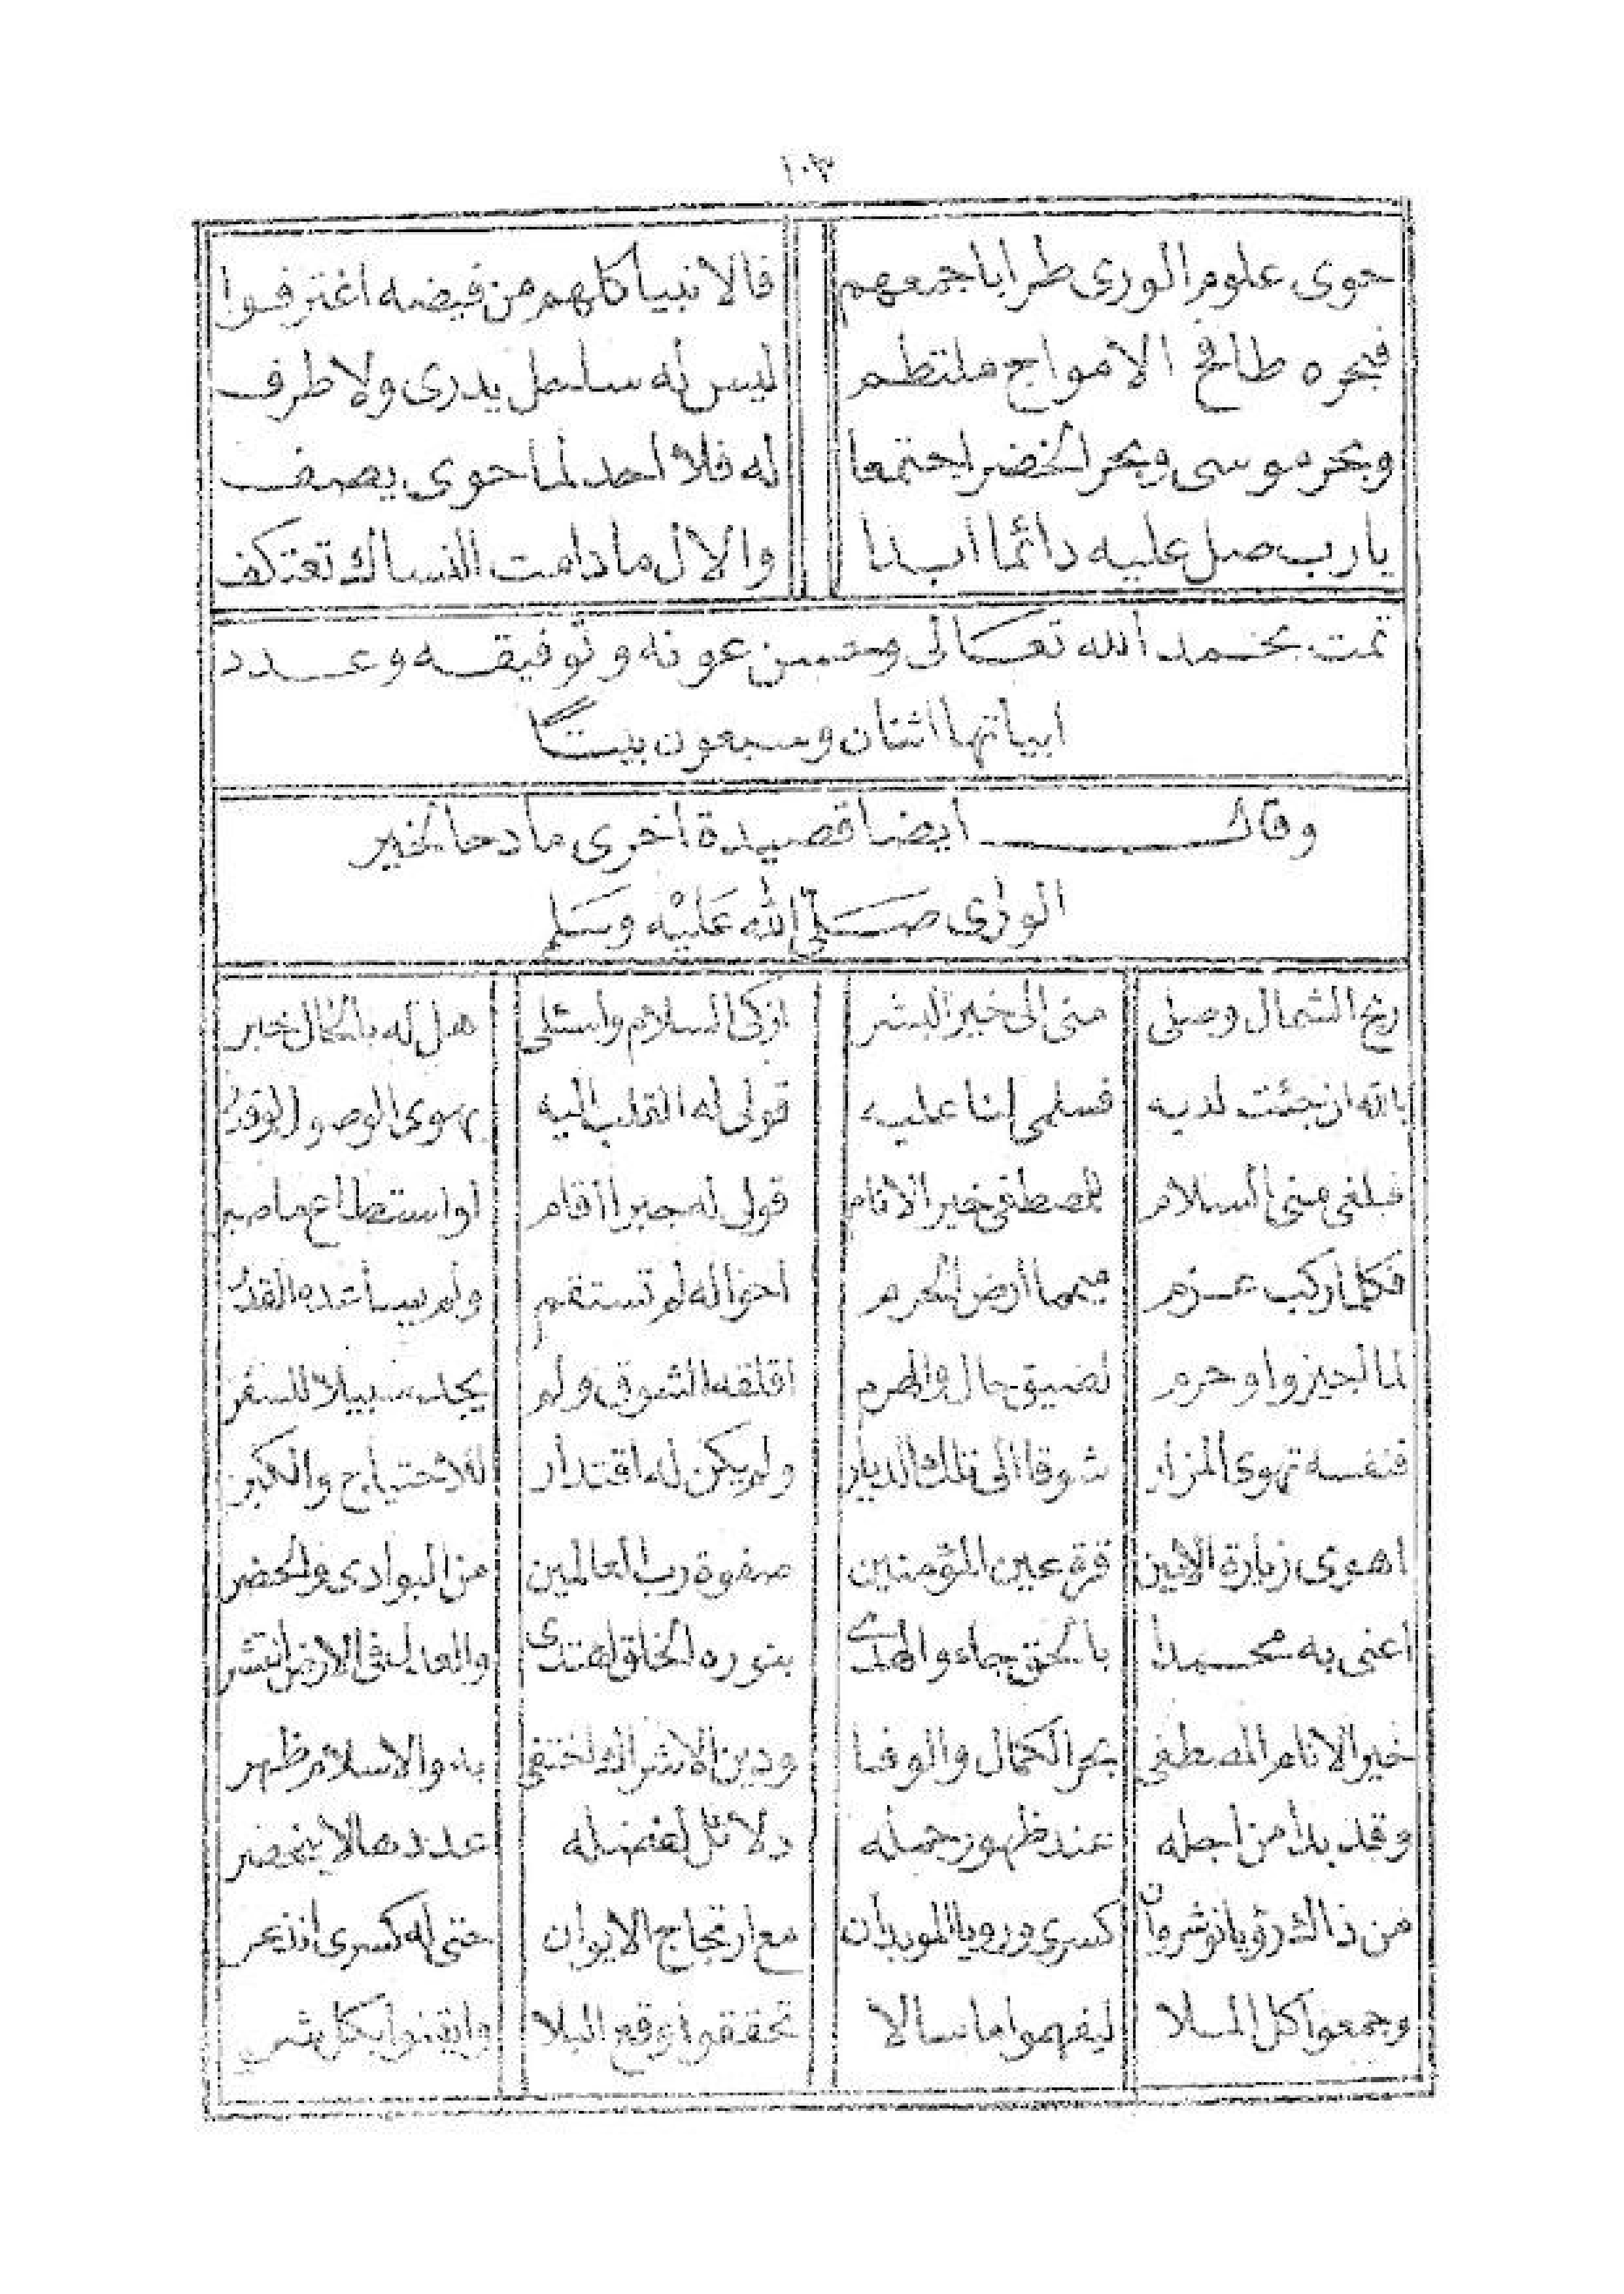 ١٠٣
حوى علوم الورى طرا باجمعهم فالانبيا كلهم من فيضه اغترفوا
فبحره طافح الامواج ملتطم ليس له ساحل يدرى ولا طرف
وبحر موسى وبحر الخضر اجتمعا له فلا احد لما حوى يصف
يارب صل عليه دائما ابدا والال ما دامت النساك تعتكف
تمت بحمد الله تعالى وحسن عونه وتوفيقه وعدد
ابياتها اثنان وسبعون بيتًا
وقال ايضا قصيدة اخرى مادحا لخير
الورى صَلّى الله عَليْه وسَلم
ريح الشمال وصلى منى الى خير البشر ازكى السلام واسئلى هل له بالحال خبر
بالله ان جئت لديه فسلمى لنا عليه قولى له القلب اليه يهوى
فبلغى منى السلام للمصطفى خير الانام قولى له اقام او استطاع ما صبر
فكلما ركب عزم ميمما ارض الحرم احواله لم تستقم ولم يساعده القدر
لما لجيزوا وحرم لضيق حال والهرم اقلقه الشوق ولم يجد سبيلا للسفر
فنفسه تهوى المزار شوقا الى تلك الديار ولم يكن له اقتدار للاحتياج والكبر
اهوى زيارة الامين قرة عين المؤمنين صفوة رب العالمين من البوادى والحضر
اعنى به محمدا بالحق جاء والهدى بنوره الخلق اهتدى والعدل فى الارض انتشر
خير الانام المصطفى بحر الكمال والوفا ودين الاشراك اختفى به والاسلام ظهر
وقد بدا من اجله عند ظهور حمله دلائل لفضله عددها لا ينحصر
من ذاك رؤيا انوشروان كسرى ورويا الموبذان مع ارتجاج الايوان حتى له كسرى انذعر
وجمعوا كل الملا ليفهموا ما سالا تحققوا وقع البلا وايقنوا بكل شر